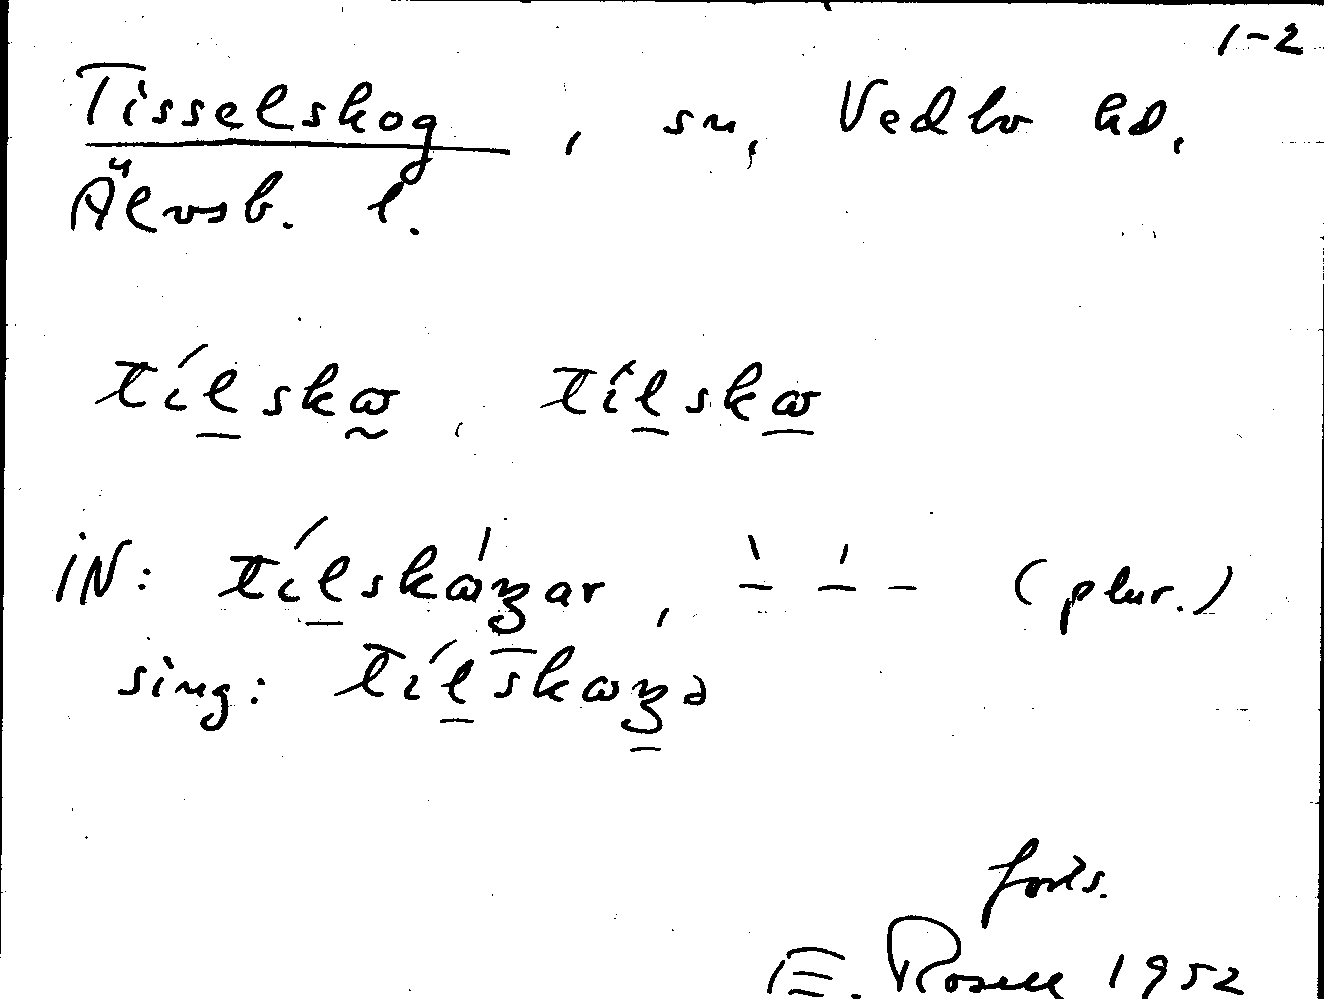 1-2
Tisselskog, sn, Vedbo hd,
Älvsb. l.
tílskω, tílskω
IN: tílskώʒar, - - - (plur.)
sing: tílskωʒə
forts.
E. Rosell 1952